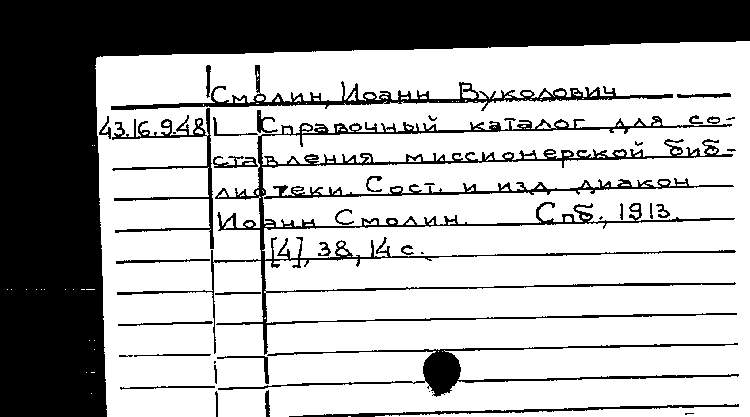 Смолин, Иоанн Вуколович
43.16.948 1 Справочный каталог для со-
ставления миссионерской биб-
лиотеки. Сост. и изд. диакон
Иоанн Смолин. Спб., 1913.
[4], 38, 14 с.